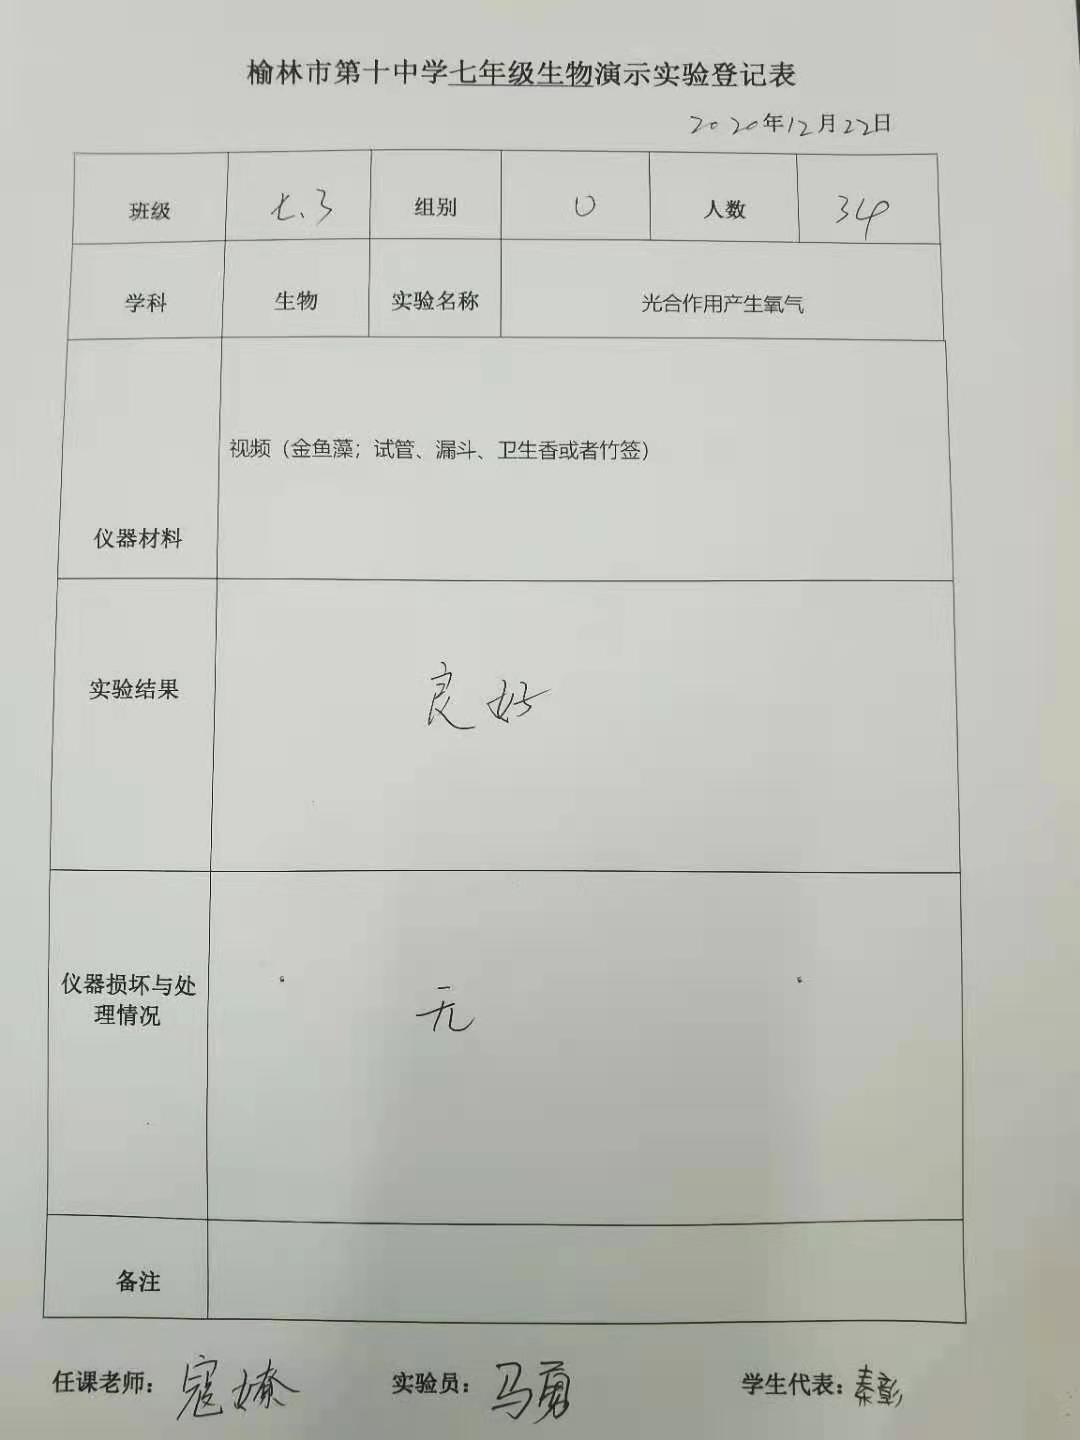 榆林市第十中学七年级生物演示实验登记表
2020年12月22日
班级 七.3 组别 0 人数 34
学科 生物 实验名称 光合作用产生氧气
视频（金鱼藻；试管、漏斗、卫生香或者竹签）
仪器材料
实验结果 良好
仪器损坏与处
理情况 无
备注
任课老师：寇嫽 实验员：马勇 学生代表：秦彰